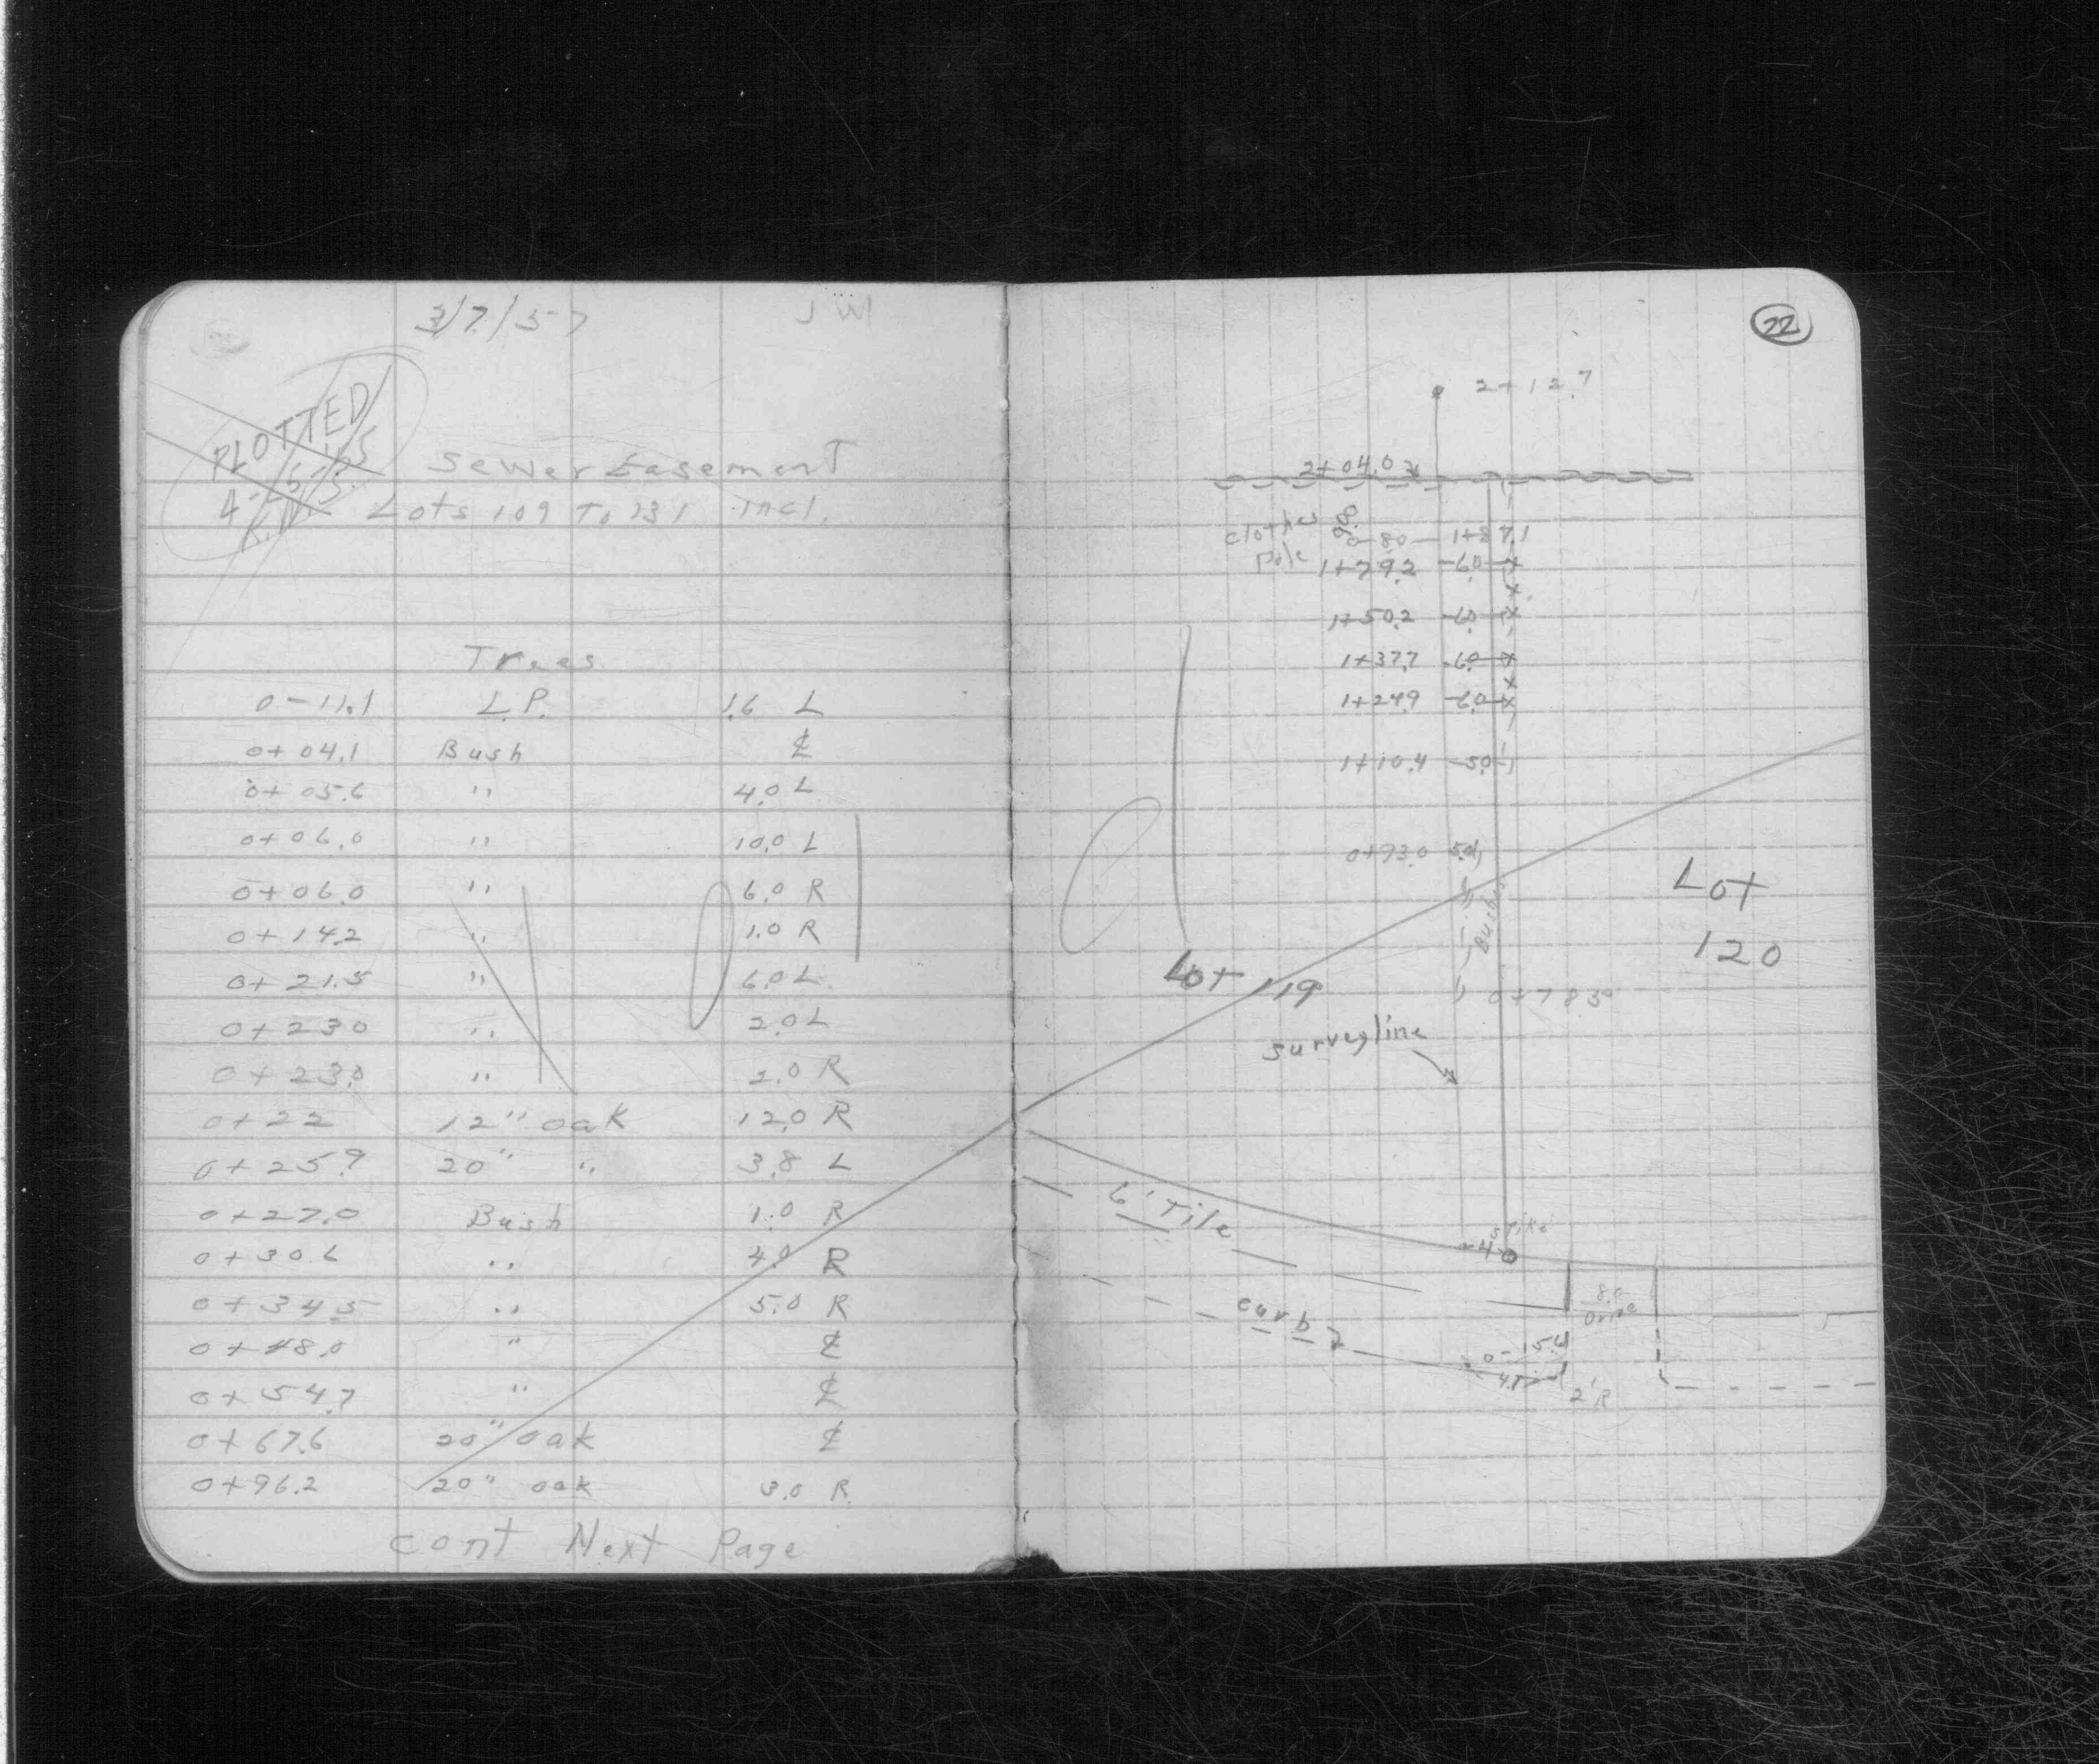 3/7/57
PLOTTED
Sewer Easement
Lots 109 To 131 incl.
Trees
0-11.1 L.P. 1.6 L
0+04.1 Bush ℄
0+05.6 " 4.0 L
0+06.0 " 10.0 L
0+06.0 " 6.0 R
0+14.2 " 1.0 R
0+21.5 " 6.0 L
0+23.0 " 2.0 L
0+23.0 " 2.0 R
0+22 12" oak 12.0 R
0+25.9 20" " 3.8 L
0+27.0 Bush 1.0 R
0+30.6 " 4.0 R
0+34.5 " 5.0 R
0+48.0 " ℄
0+54.7 " ℄
0+67.6 20" oak ℄
0+96.2 20" oak 3.0 R
cont Next Page
22
2+12.7
2+04.0
clothes
pole
8.0 1+87.1
1+79.2 -6.0-x
1+50.2 -6.0-x
1+37.7 -6.0-x
1+24.9 -6.0-x
1+10.4 -5.0-
0+93.0 5.0
Bushes
Lot
120
Lot 119
0+78.5
survey line
6' Tile
spike
curb
8.0
Drive
0-15.4
2'R